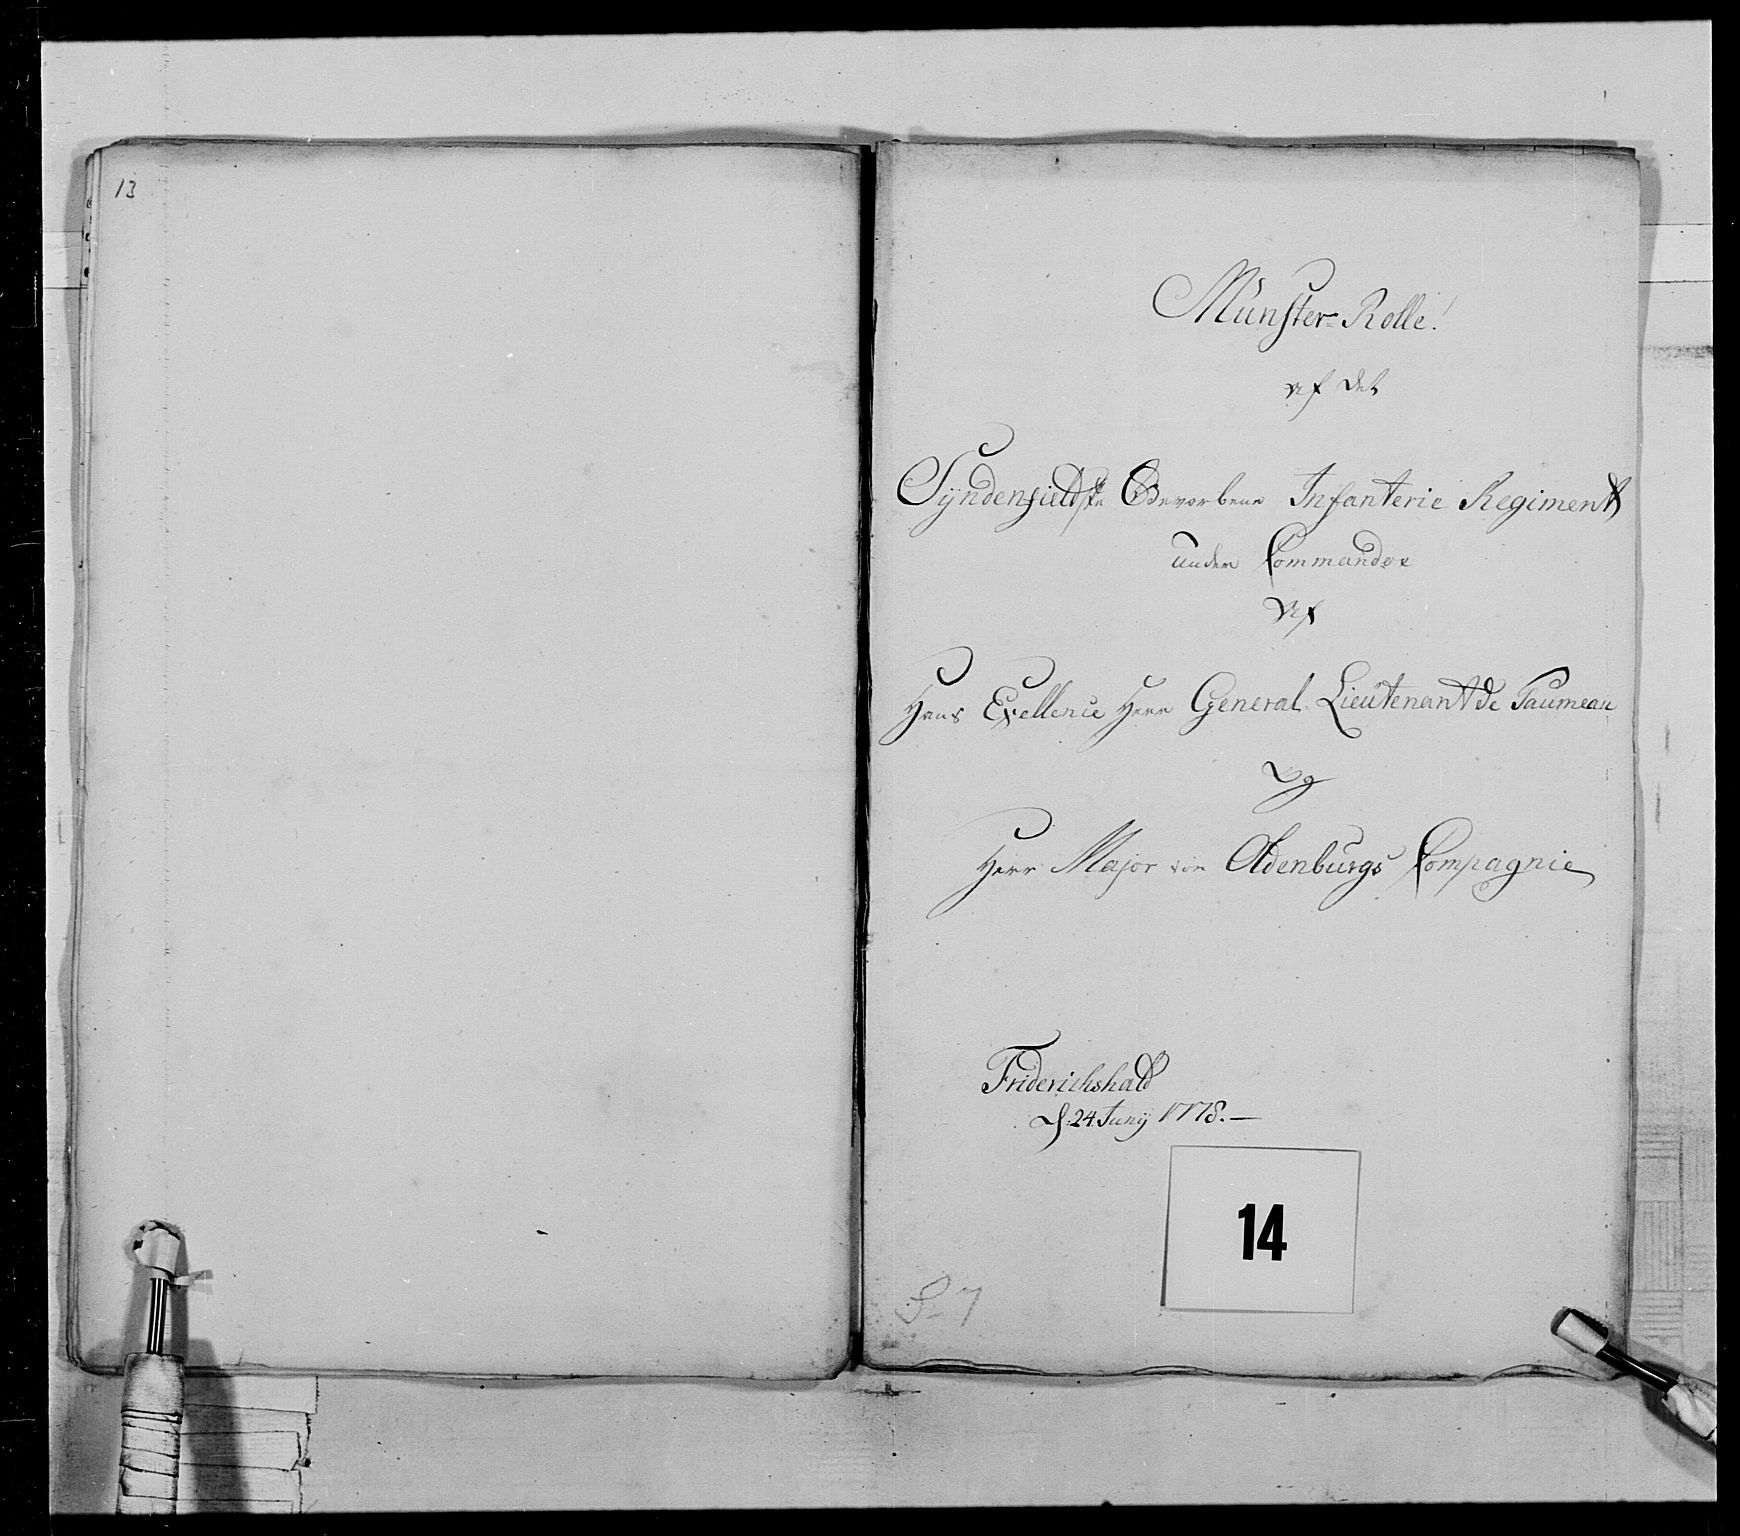 13
Münster-Rolle!
af det
Syndenfieldske Gevorbene Infanterie Regiment
under Commandoe
Af
Hans Exellence Herr General-Lieutenant de Saumeau
og
Herr Major von Oldenburgs Compagnie
Friderichshald
d: 24. Junÿ 1778.—
14